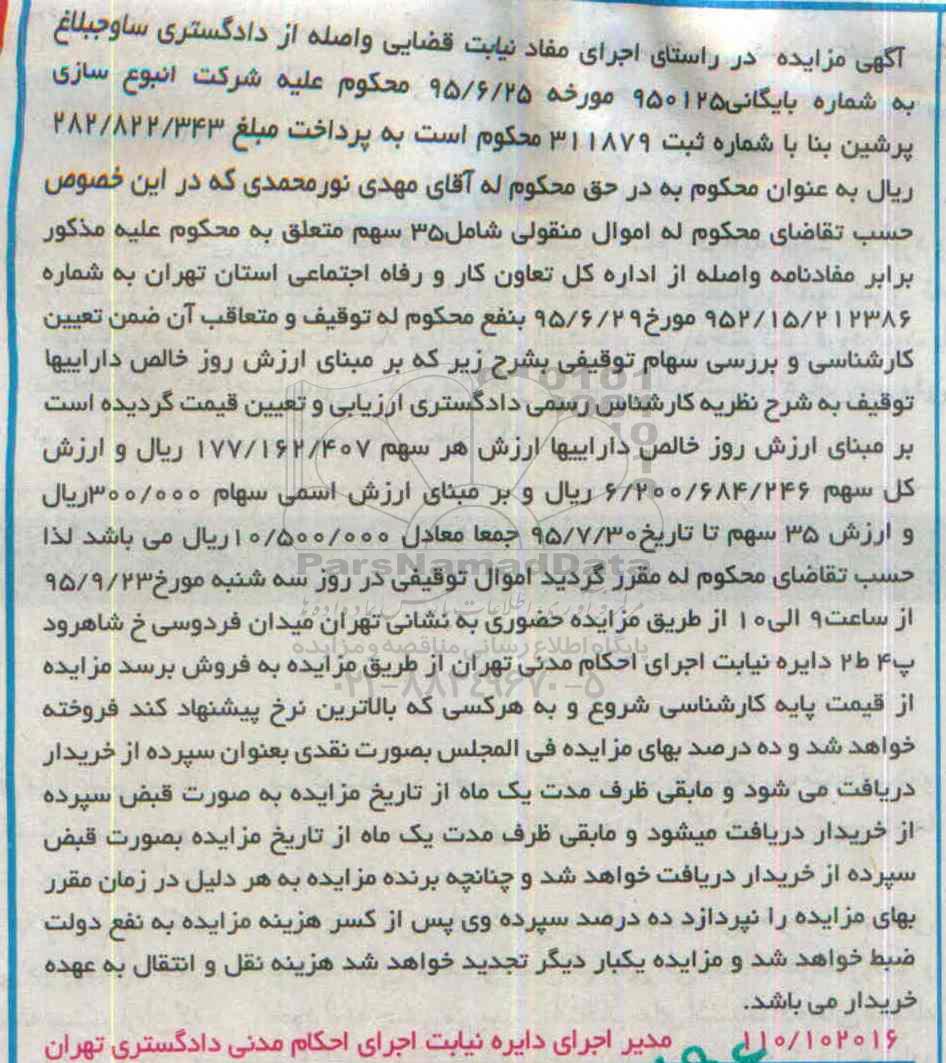 آگهی مزایده در راستای اجرای مفاد نیابت قضایی واصله از دادگستری ساوجبلاغ
به شماره بایگانی۹۵۰۱۲۵ مورخه ۹۵/۶/۲۵ محکوم علیه شرکت انبوع سازی
پرشین بنا با شماره ثبت ۳۱۱۸۷۹ محکوم است به پرداخت مبلغ ۲۸۲/۸۲۲/۳۴۳
ریال به عنوان محکوم به در حق محکوم له آقای مهدی نورمحمدی که در این خصوص
حسب تقاضای محکوم له اموال منقولی شامل۳۵ سهم متعلق به محکوم علیه مذکور
برابر مفادنامه واصله از اداره کل تعاون کار و رفاه اجتماعی استان تهران به شماره
۹۵۲/۱۵/۲۱۲۳۸۶ مورخ۹۵/۶/۲۹ بنفع محکوم له توقیف و متعاقب آن ضمن تعیین
کارشناسی و بررسی سهام توقیفی بشرح زیر که بر مبنای ارزش روز خالص داراییها
توقیف به شرح نظریه کارشناس رسمی دادگستری ارزیابی و تعیین قیمت گردیده است
بر مبنای ارزش روز خالص داراییها ارزش هر سهم ۱۷۷/۱۶۲/۴۰۷ ریال و ارزش
کل سهم ۶/۲۰۰/۶۸۴/۲۴۶ ریال و بر مبنای ارزش اسمی سهام ۳۰۰/۰۰۰ریال
و ارزش ۳۵ سهم تا تاریخ۹۵/۷/۳۰ جمعا معادل ۱۰/۵۰۰/۰۰۰ریال می باشد لذا
حسب تقاضای محکوم له مقرر گردید اموال توقیفی در روز سه شنبه مورخ۹۵/۹/۲۳
از ساعت۹ الی۱۰ از طریق مزایده حضوری به نشانی تهران میدان فردوسی خ شاهرود
پ۴ ط۲ دایره نیابت اجرای احکام مدنی تهران از طریق مزایده به فروش برسد مزایده
از قیمت پایه کارشناسی شروع و به هرکسی که بالاترین نرخ پیشنهاد کند فروخته
خواهد شد و ده درصد بهای مزایده فی المجلس بصورت نقدی بعنوان سپرده از خریدار
دریافت می شود و مابقی ظرف مدت یک ماه از تاریخ مزایده به صورت قبض سپرده
از خریدار دریافت میشود و مابقی ظرف مدت یک ماه از تاریخ مزایده بصورت قبض
سپرده از خریدار دریافت خواهد شد و چنانچه برنده مزایده به هر دلیل در زمان مقرر
بهای مزایده را نپردازد ده درصد سپرده وی پس از کسر هزینه مزایده به نفع دولت
ضبط خواهد شد و مزایده یکبار دیگر تجدید خواهد شد هزینه نقل و انتقال به عهده
خریدار می باشد.
۱۱۰/۱۰۲۰۱۶ مدیر اجرای دایره نیابت اجرای احکام مدنی دادگستری تهران
ParsNamadData
پایگاه اطلاع رسانی مناقصه و مزایده
۰۲۱-۸۸۳۴۹۶۷۰-۵